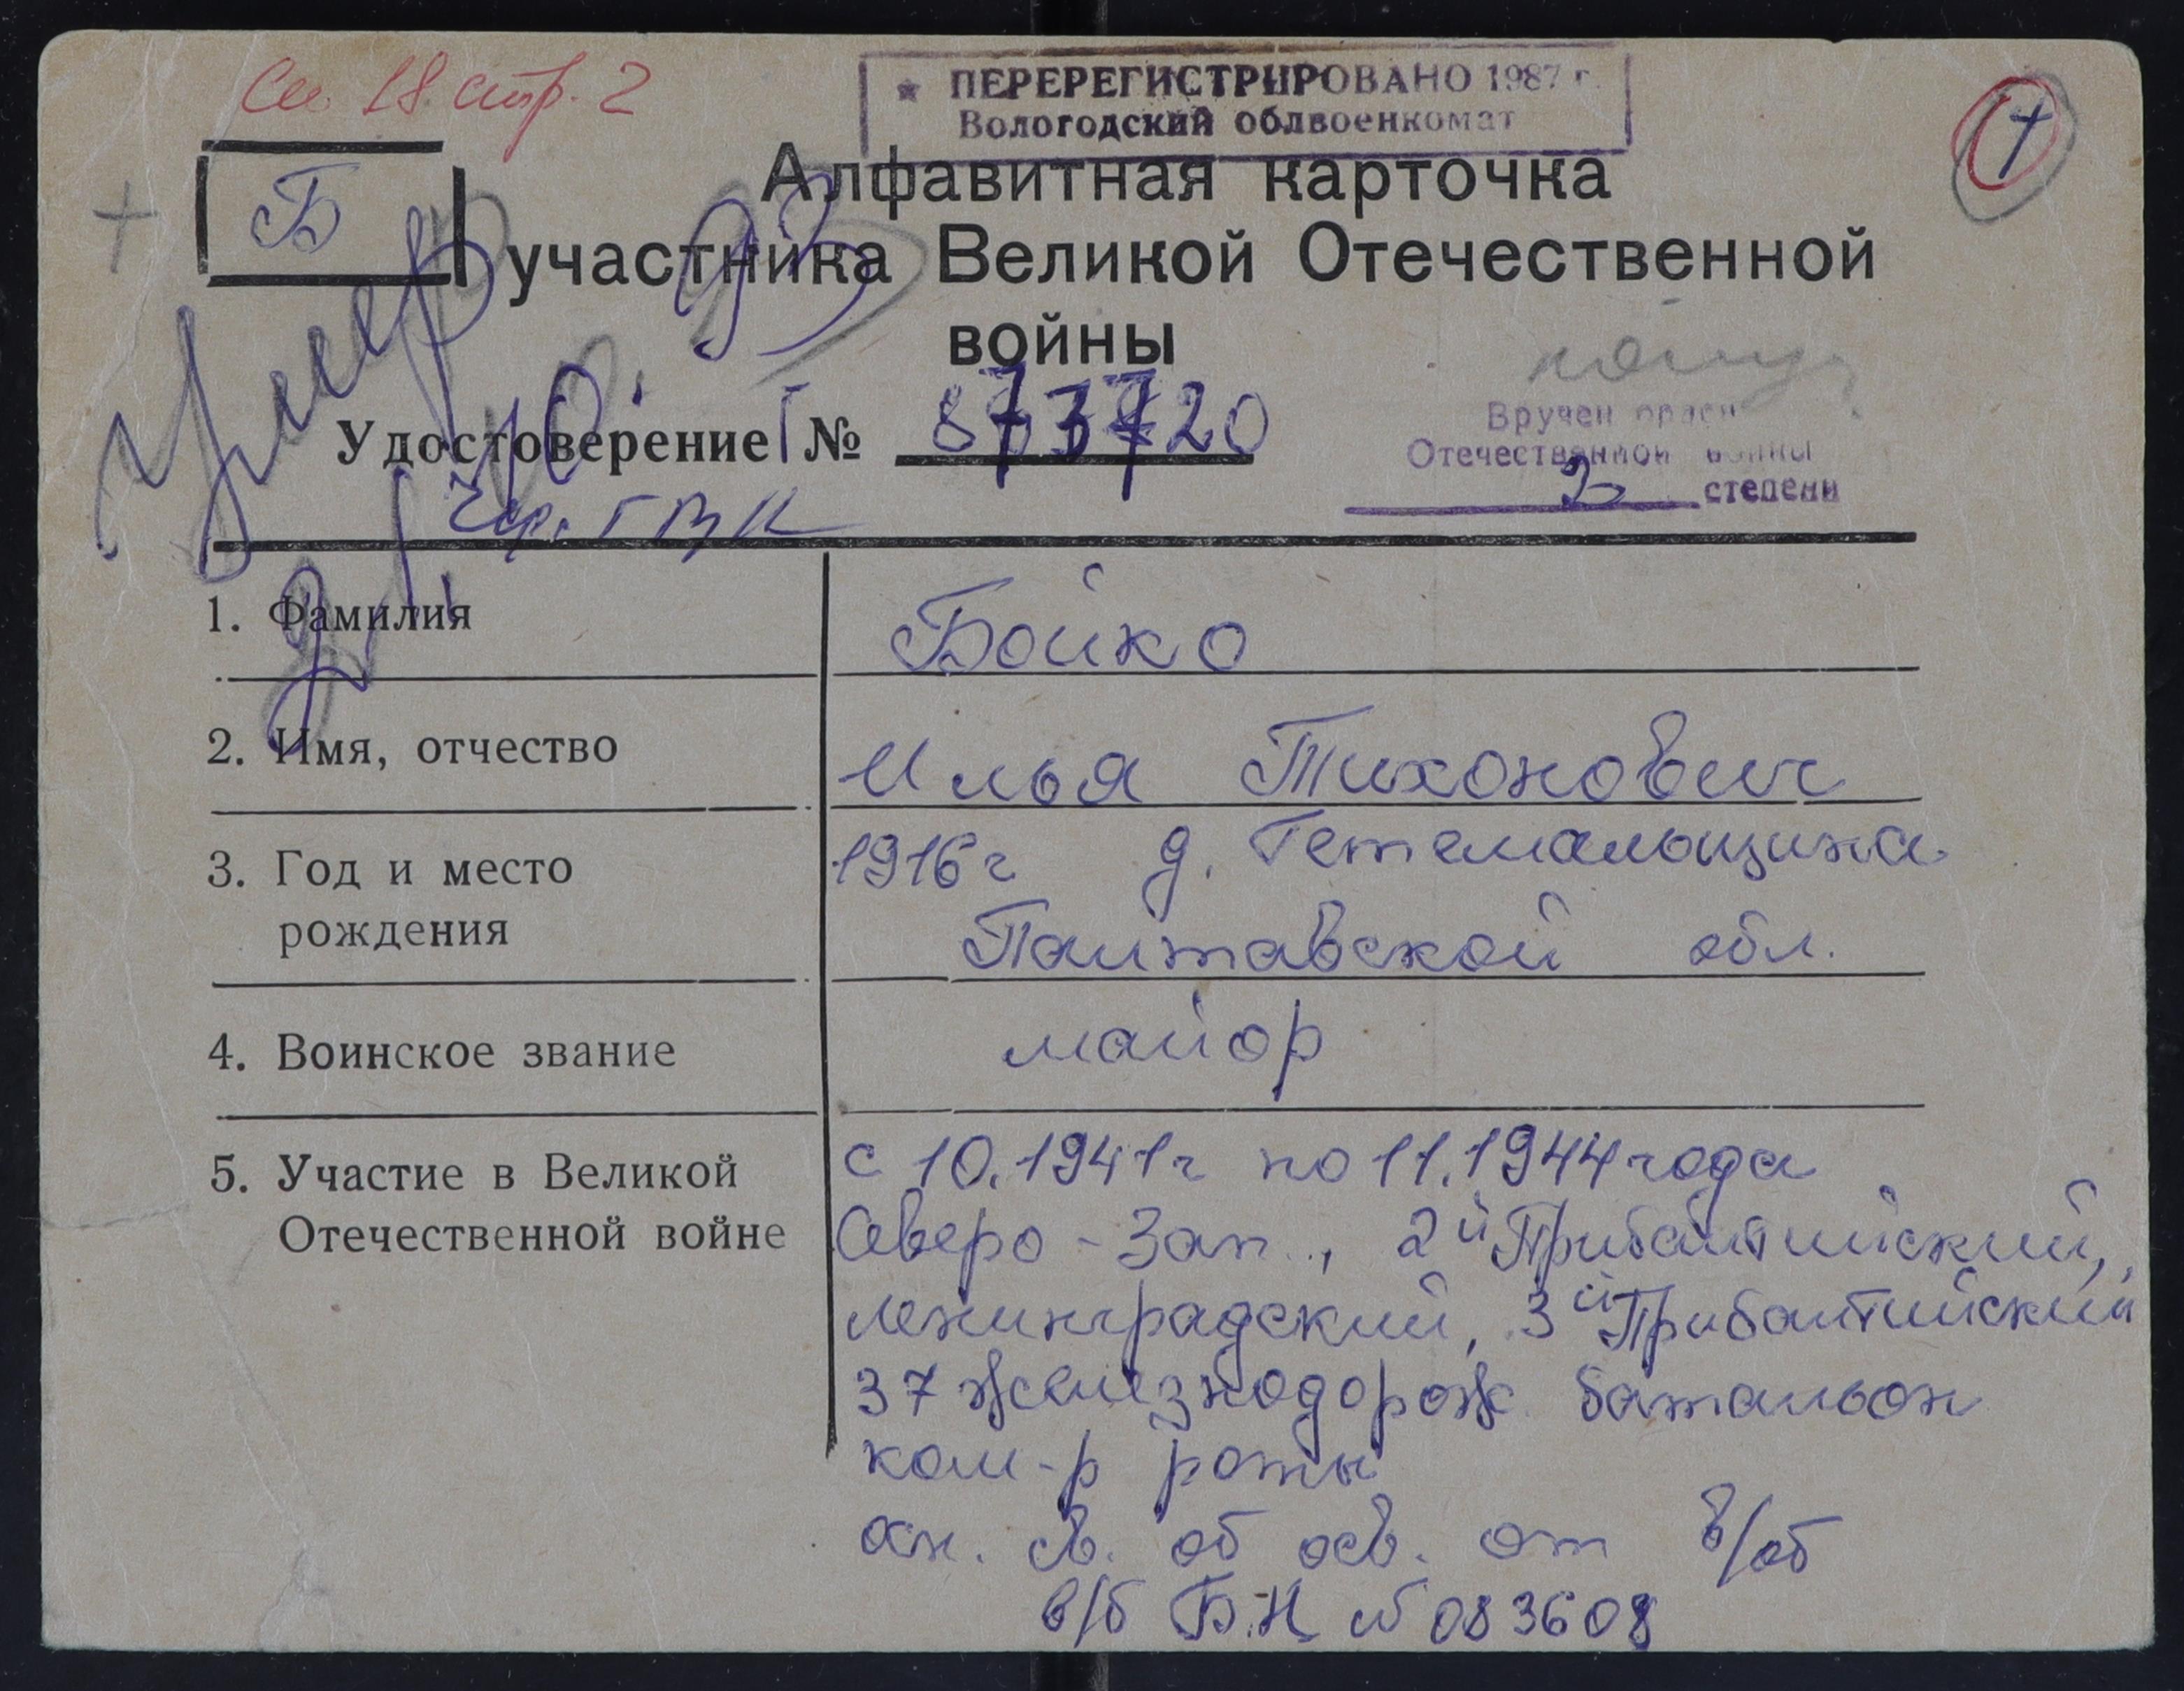 См. 18 стр. 2
ПЕРЕРЕГИСТРИРОВАНО 1987 г.
Вологодский облвоенкомат
Б
Алфавитная карточка
участника Великой Отечественной
войны
Умер
93
Удостоверение Г № 873720
Вручен орден
Отечественной войны
2 степени
Чер. ГВК
1. Фамилия Бойко
2. Имя, отчество Илья Тихонович
3. Год и место 1916 г д. Гетемальщина
рождения Палтавской обл.
4. Воинское звание майор
5. Участие в Великой с 10.1941 г по 11.1944 года
Отечественной войне Северо-Зап., 2й Прибалтийский,
Ленинградский, 3й Прибалтийский
37 железнодорож. батальон
ком-р роты
ок. св. об осв. от в/об
в/б Б.Н № 083608